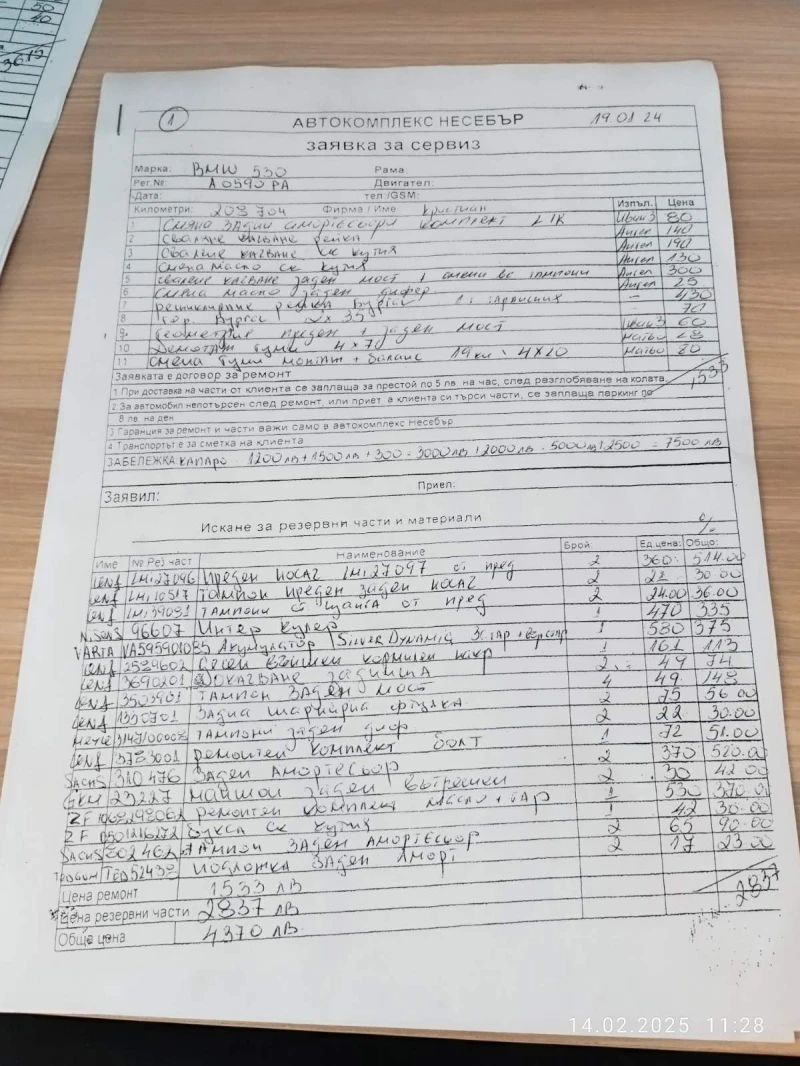 50
10
3615
1
АВТОКОМПЛЕКС НЕСЕБЪР 19 01 24
заявка за сервиз
Марка: BMW 530 Рама:
Рег.№: А 0590 РА Двигател:
Дата: тел:/GSM:
Километри: 208 704 Фирма / Име Кристиан Изпъл. Цена
1 Смяна задни амортесьори комплект Иван З 80
2 Сваляне качване рейка Ангел 140
3 Сваляне качване ск кутия Ангел 190
4 Смяна масло ск кутия Ангел 130
5 сваляне качване заден мост смени вс тампони Ангел 300
6 Смяна масло заден дифер Ангел 25
7 рейка Бургас — 430
8 Бургас 2 x 35 - 70
9. Геометрия преден + заден мост Иван З 60
10 гуми 4 x 70 28
11 Смяна гуми монтаж + баланс 19ки 4x20 80
Заявката е договор за ремонт 1,533
1 При доставка на части от клиента се заплаща за престой по 5 лв. на час, след разглобяване на колата.
2 За автомобил непотърсен след ремонт, или приет а клиента си търси части, се заплаща паркинг по
8 лв. на ден
3 Гаранция за ремонт и части важи само в автокомплекс Несебър
4 Транспортът е за сметка на клиента
ЗАБЕЛЕЖКА капаро 1200лв + 1500лв + 300 = 3000лв + 2000лв = 5000лв + 2500 = 7500 лв
Заявил: Приел:
Искане за резервни части и материали %
Име № Рез част Наименование Брой: Ед.цена: Общо:
Lemf LMI27096 Преден носач LMI27097 от пред 2 360 514.00
Lemf LMI10517 Тампон преден заден носач 2 22 30 00
Lemf LMI39091 Тампони от щанга от пред 2 24.00 36.00
N.Sens 96607 Интер кулер 1 470 335
VARTA VA595901085 Акумулатор Silver Dynamic 1 530 375
Lemf 2589602 1 161 113
Lemf 3690201 Окачване задница 2 49 74
Lemf 3503901 Тампон заден мост 4 49 148
Lemf 1350701 Задна шарнирна фузелка 2 75 56 00
Meyle Тампони заден диф. 2 22 30.00
Lemf 3783001 ремонтен комплект болт 1 72 51.00
SACHS 310476 Заден амортесьор 2 370 520.00
GKN 23227 заден вътрешен 2 30 42 00
ZF 1068298062 ремонтен комплект масло + гар 1 530 370.00
ZF 0501216272 Букса ск кутия 1 42 30.00
SACHS 802462 Тампон заден амортесьор 2 65 90.00
TED52438 подложка заден аморт 2 17 23 00
Цена ремонт 1533 лв
Цена резервни части 2837 лв 2837
Обща цена 4370 лв
14.02.2025 11:28